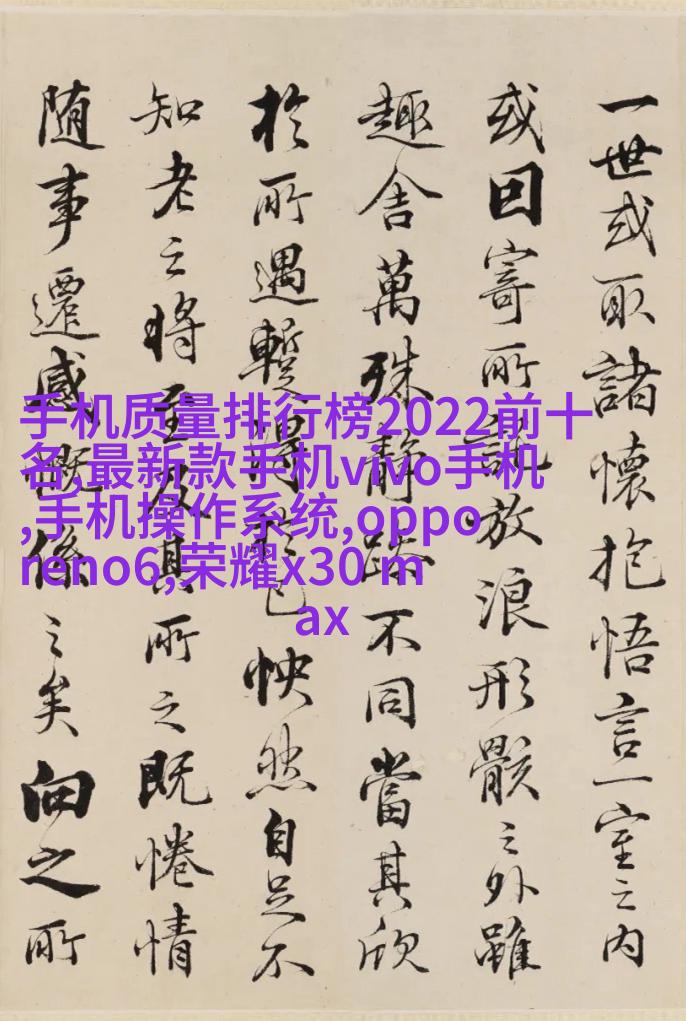 一世或取諸懷抱悟言一室之内
或因寄所託放浪形骸之外雖
趣舍萬殊静躁不同當其欣
於所遇蹔得於己怏然自足不
知老之將至及其所之既惓情
随事遷感慨係之矣向之所
手机质量排行榜2022前十
名,最新款手机vivo手机
,手机操作系统,oppo
reno6,荣耀x30 m
ax